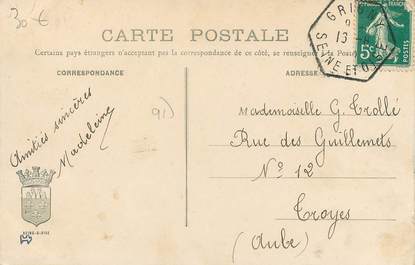 30 €
CARTE POSTALE
Certains pays étrangers n'acceptant pas la correspondance de ce côté, se renseigner
CORRESPONDANCE
ADRESSE
Amitiés sincères
Madeleine
91)
Mademoiselle G. Trollé
Rue des Guillemets
N° 12
Troyes
(Aube)
SEINE-&-OISE
GRI
13
SEINE ET O
5c
POSTES